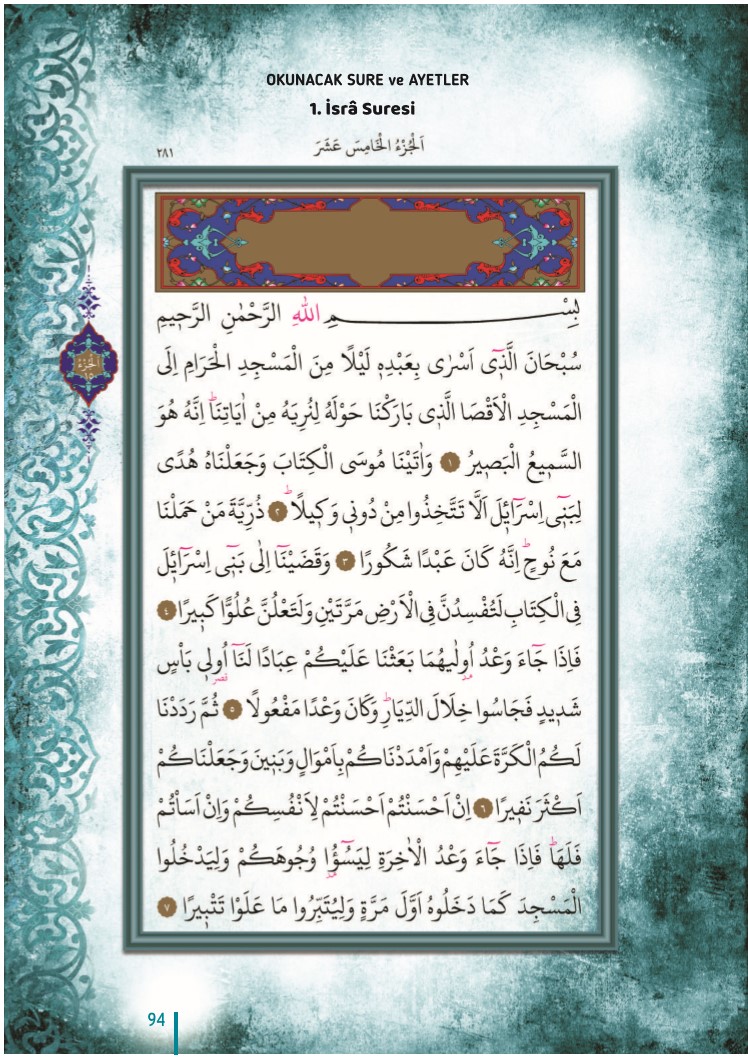 OKUNACAK SURE ve AYETLER
1. İsrâ Suresi
اَلْجُزْءُ الْخَامِسَ عَشَرَ
٢٨١
بِسْمِ اللّٰهِ الرَّحْمٰنِ الرَّح۪يمِ
سُبْحَانَ الَّذ۪ٓي اَسْرٰى بِعَبْدِه۪ لَيْلًا مِنَ الْمَسْجِدِ الْحَرَامِ اِلَى
الْمَسْجِدِ الْاَقْصَا الَّذ۪ي بَارَكْنَا حَوْلَهُ لِنُرِيَهُ مِنْ اٰيَاتِنَاۜ اِنَّهُ هُوَ
السَّم۪يعُ الْبَص۪يرُ ﴿١﴾ وَاٰتَيْنَا مُوسَى الْكِتَابَ وَجَعَلْنَاهُ هُدًى
لِبَن۪ٓي اِسْرَٓائ۪لَ اَلَّا تَتَّخِذُوا مِنْ دُون۪ي وَك۪يلًاۜ ﴿٢﴾ ذُرِّيَّةَ مَنْ حَمَلْنَا
مَعَ نُوحٍۜ اِنَّهُ كَانَ عَبْدًا شَكُورًا ﴿٣﴾ وَقَضَيْنَٓا اِلٰى بَن۪ٓي اِسْرَٓائ۪لَ
فِي الْكِتَابِ لَتُفْسِدُنَّ فِي الْاَرْضِ مَرَّتَيْنِ وَلَتَعْلُنَّ عُلُوًّا كَب۪يرًا ﴿٤﴾
فَاِذَا جَٓاءَ وَعْدُ اُو۫لٰيهُمَا بَعَثْنَا عَلَيْكُمْ عِبَادًا لَنَٓا اُو۬ل۪ي بَاْسٍ
شَد۪يدٍ فَجَاسُوا خِلَالَ الدِّيَارِۜ وَكَانَ وَعْدًا مَفْعُولًا ﴿٥﴾ ثُمَّ رَدَدْنَا
لَكُمُ الْكَرَّةَ عَلَيْهِمْ وَاَمْدَدْنَاكُمْ بِاَمْوَالٍ وَبَن۪ينَ وَجَعَلْنَاكُمْ
اَكْثَرَ نَف۪يرًا ﴿٦﴾ اِنْ اَحْسَنْتُمْ اَحْسَنْتُمْ لِاَنْفُسِكُمْ وَاِنْ اَسَاْتُمْ
فَلَهَاۜ فَاِذَا جَٓاءَ وَعْدُ الْاٰخِرَةِ لِيَسُٓؤُ۫ا وُجُوهَكُمْ وَلِيَدْخُلُوا
الْمَسْجِدَ كَمَا دَخَلُوهُ اَوَّلَ مَرَّةٍ وَلِيُتَبِّرُوا مَا عَلَوْا تَتْب۪يرًا ﴿٧﴾
اَلْجُزْءُ
١٥
94